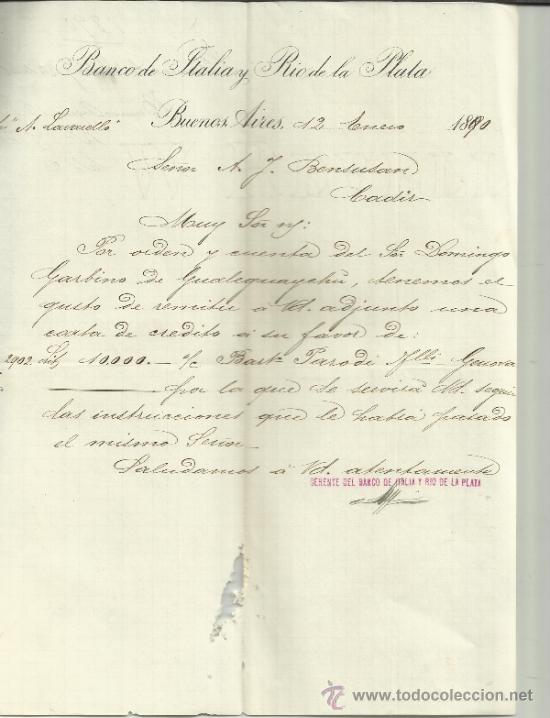 Banco de Italia y Rio de la Plata
"A. Lavarello" Buenos Aires, 12 Enero 1890
Señor A. J. Bensusan
Cadiz
Muy Sor n/:
Por orden y cuenta del Sor Domingo
Garbino de Gualeguaychú, tenemos el
gusto de remitir á Vd. adjunto una
carta de credito á su favor de:
2902 10.000.- o/c Bartme Parodi flli Genova
por la que se servirá Vd. seguir
las instrucciones que le habia pasado
el mismo Señor
Saludamos á Vd. atentamente
GERENTE DEL BANCO DE ITALIA Y RIO DE LA PLATA
© www.todocoleccion.net